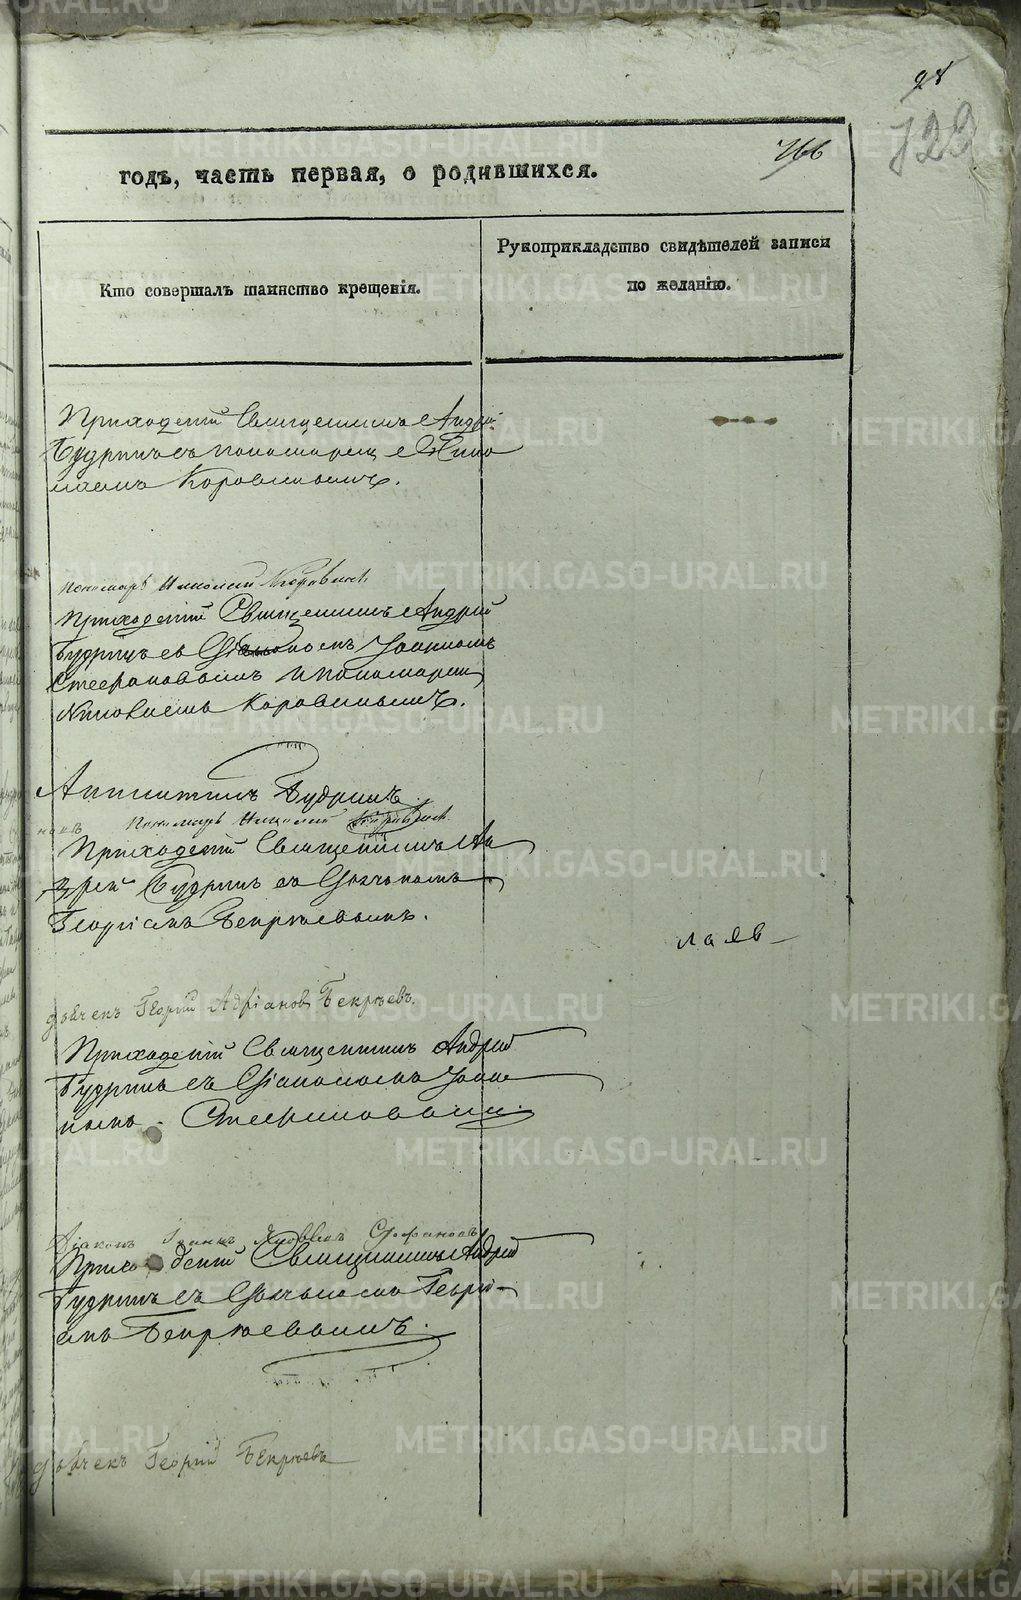 98
129
766
годъ, часть первая, о родившихся.
Кто совершалъ таинство крещенія.
Рукоприкладство свидѣтелей записи
по желанію.
Приходскій Священникъ Андрей
Будринъ съ пономаремъ Нико
лаемъ Коровинымъ.
пономарь Николай Коровинъ
Приходскій Священникъ Андрей
Будринъ съ Діакономъ Іоанномъ
Стефановымъ и пономаремъ
Николаемъ Коровинымъ.
Будринъ.
Пономарь Николай Коровинъ.
Приходскій Священникъ Ан
дрей Будринъ съ Дьячкомъ
Георгіемъ Бекрѣевымъ.
дьячекъ Георгій Адріановъ Бекрѣевъ.
Приходскій Священникъ Андрей
Будринъ съ Діакономъ Іоан
номъ Стефановымъ.
Діаконъ Іоаннъ Стефановъ
Приходскій Священникъ Андрей
Будринъ съ Дьячкомъ Георгі-
емъ Бекрѣевымъ.
дьячекъ Георгій Бекрѣевъ
METRIKI.GASO-URAL.RU